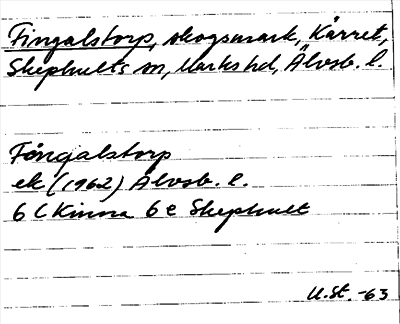 Fingalstorp, skogsmark, Kärret,
Skephults sn, Marks hd, Älvsb. l.
Fängalstorp
ek (1962) Älvsb. l.
6 C Kinna 6 e Skephult
U.St. -63